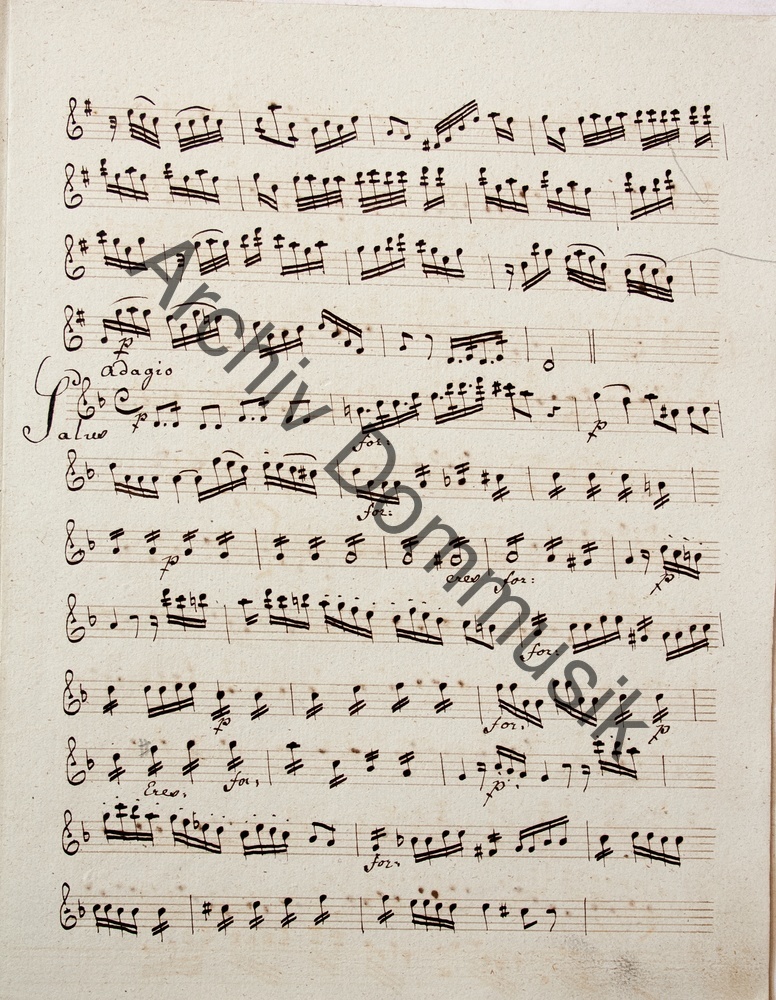 p
Adagio
Salve
p for: p
for:
p cres for: p
for:
p for: p
Cres, for, p:
for,
Archiv Dommusik